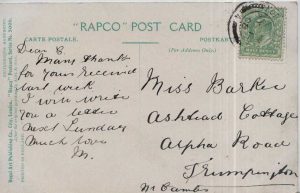 "RAPCO" POST CARD
CARTE POSTALE.
POSTKARTE
(For Address Only).
Dear C
Many thanks
for your received
last week
I will write
you a letter
next Sunday
Much love
M.
Miss Barker
Ashtead Cottage
Alpha Road
Trumpington
Nr Cambs